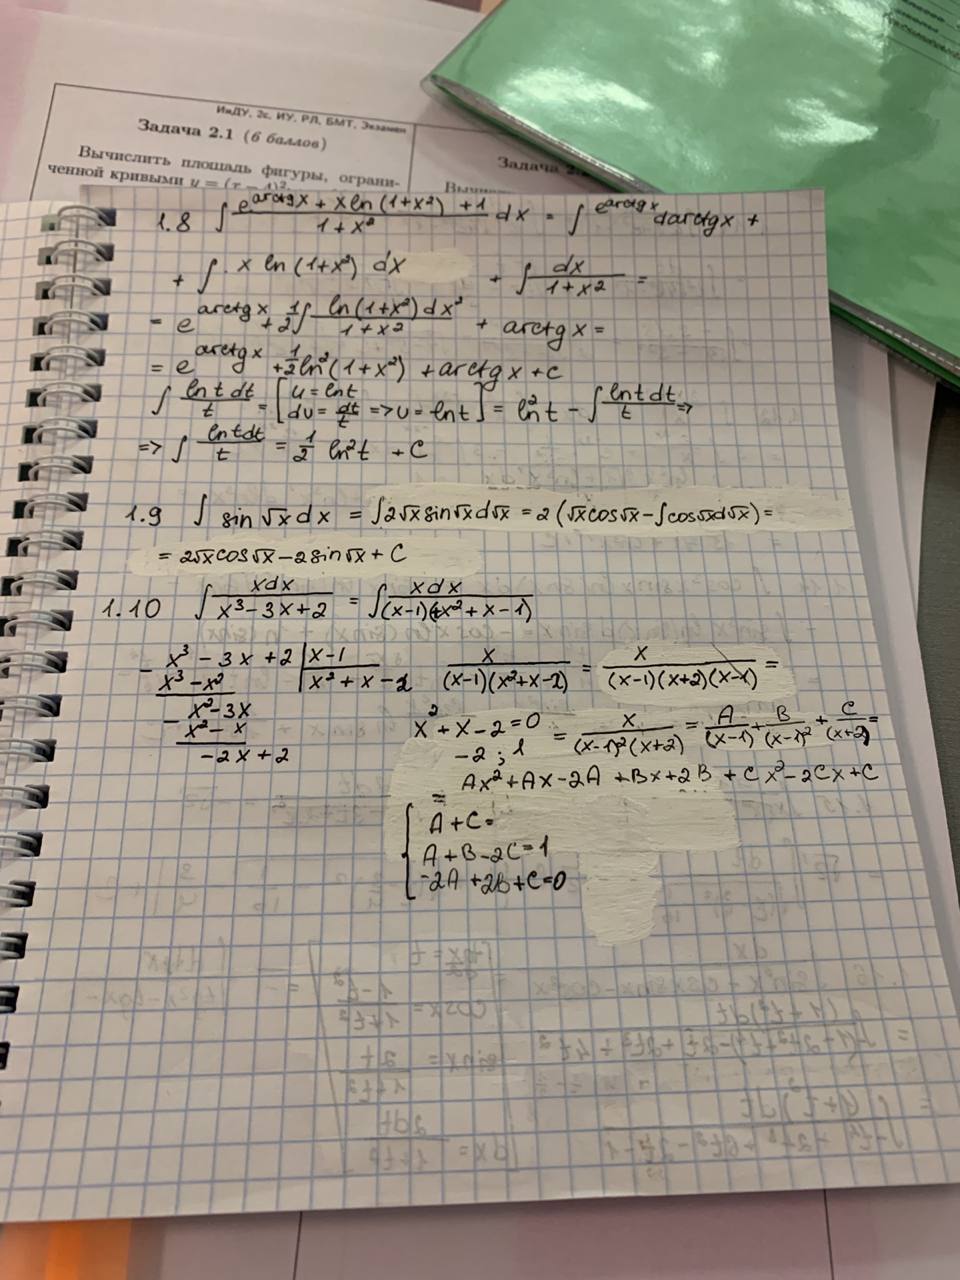 ИиДУ, 2с, ИУ, РЛ, БМТ, Экзамен
Задача 2.1 (6 баллов)
Вычислить площадь фигуры, ограни-
ченной кривыми y = (x − 1)²,
Задача 2.
1.8 ∫ (e^(arctgx) + x ln(1+x²) + 1)/(1+x²) dx = ∫ e^(arctgx) darctgx +
+ ∫ x ln(1+x²) dx + ∫ dx/(1+x²) =
= e^(arctgx) + 1/2 ∫ ln(1+x²)dx²/(1+x²) + arctgx =
= e^(arctgx) + 1/2 ln²(1+x²) + arctgx + C
∫ lnt dt/t = [u = lnt du = dt/t => u = lnt] = ln²t − ∫ lnt dt/t =>
=> ∫ lntdt/t = 1/2 ln²t + C
1.9 ∫ sin√x dx = ∫2√x sin√x d√x = 2(√x cos√x − ∫cos√x d√x) =
= 2√x cos√x − 2sin√x + C
1.10 ∫ xdx/(x³−3x+2) = ∫ xdx/((x−1)(x²+x−1))
− x³ − 3x + 2 | x−1
x³ − x² | x² + x − 2
− x² − 3x
x² − x
−2x + 2
x/((x−1)(x²+x−2)) = x/((x−1)(x+2)(x−1)) =
x² + x − 2 = 0
−2 ; 1
= x/((x−1)²(x+2)) = A/(x−1) + B/(x−1)² + C/(x+2) =
= Ax² + Ax − 2A + Bx + 2B + Cx² − 2Cx + C
A + C =
A + B − 2C = 1
−2A + 2B + C = 0